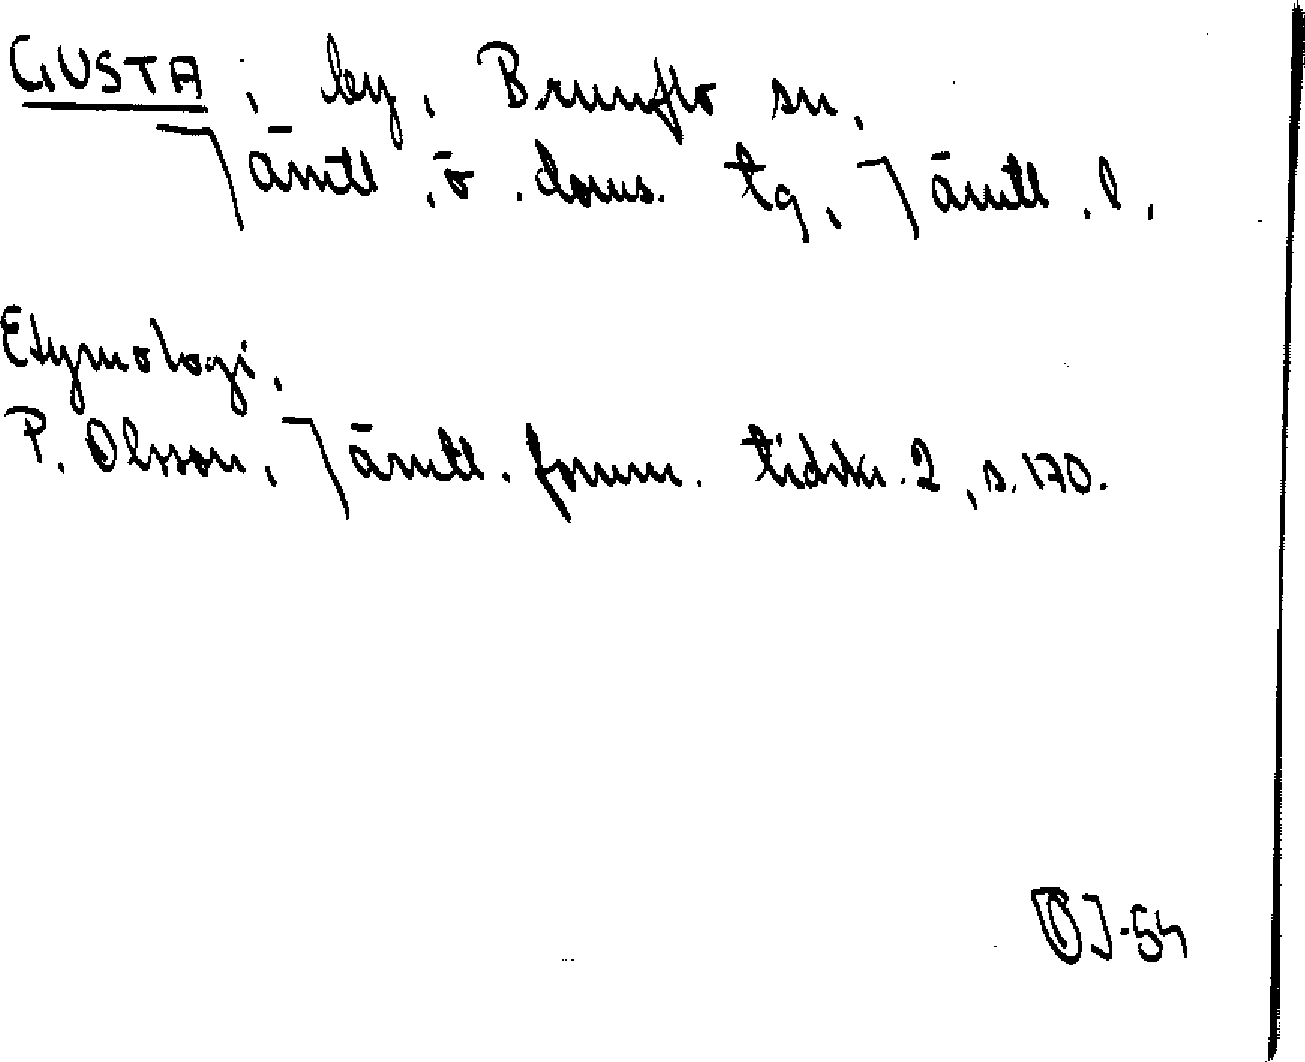 GUSTA, by, Brunflo sn,
Jämtl. ö. doms. tg, Jämtl. l.
Etymologi.
P. Olsson, Jämtl. fornm. tidskr. 2, s. 170.
OJ-54